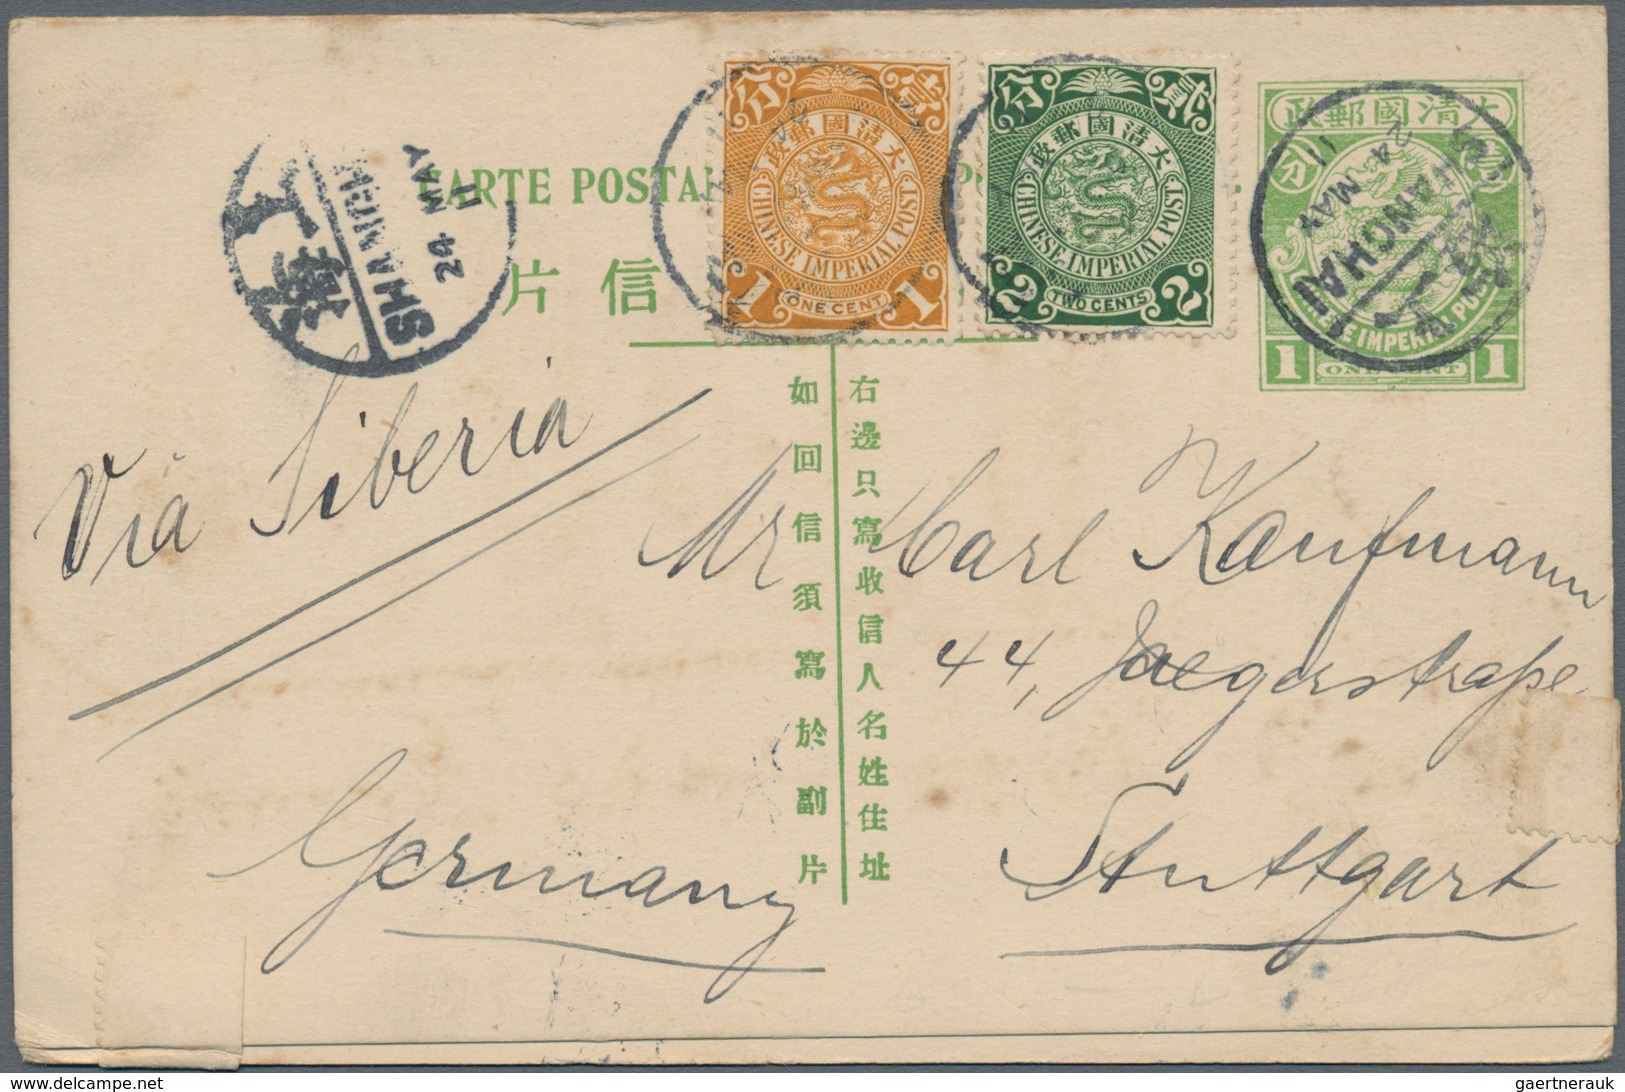 CARTE POSTAL
片 信
分 壹
大清國郵政
CHINESE IMPERIAL POST
1 ONE CENT 1
分 貳
大清國郵政
CHINESE IMPERIAL POST
2 TWO CENTS 2
政郵國清大
分 壹
IMPERIAL POST
1 ONE CENT 1
SHANGHAI
24 MAY
11
SHANGHAI
24 MAY
11
右邊只寫收信人名姓住址
如回信須寫於副片
Via Siberia
Mr Carl Kaufmann
44, Jaegerstraße
Stuttgart
Germany
www.delcampe.net
gaertnerauk